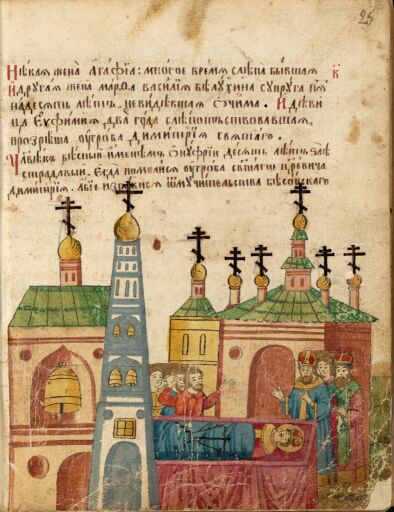 25
Нѣкая жена Агафїа: многое время слѣпа бывшая
К
И другая жена Марѳа василїя бѣлухина супруга пя
надесять лѣтъ, невидѣвшая очима. И дѣви
ца Еѵфимия, два года слѣпотствовавшая,
прозрѣша оу гроба димитрїя святаго.
Чл҃вѣкъ бѣсный именемъ Онуфрїи десять лѣтъ ѕлѣ
страдавый. Егда помолися оу гроба св҃таго цр҃евича
димитрїя. абїе избавися ѿ мучительства бѣсовскаго